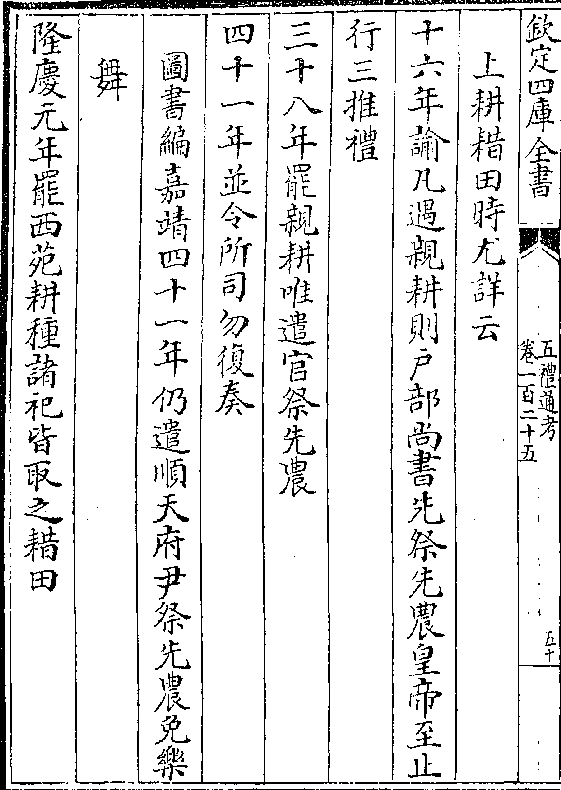 欽定四庫全書
五禮通考
卷一百二十五
五十
上耕耤田時尤詳云
十六年諭凡遇親耕則戶部尚書先祭先農皇帝至止
行三推禮
三十八年罷親耕唯遣官祭先農
四十一年並令所司勿復奏
圖書編嘉靖四十一年仍遣順天府尹祭先農免樂
舞
隆慶元年罷西苑耕種諸祀皆取之耤田